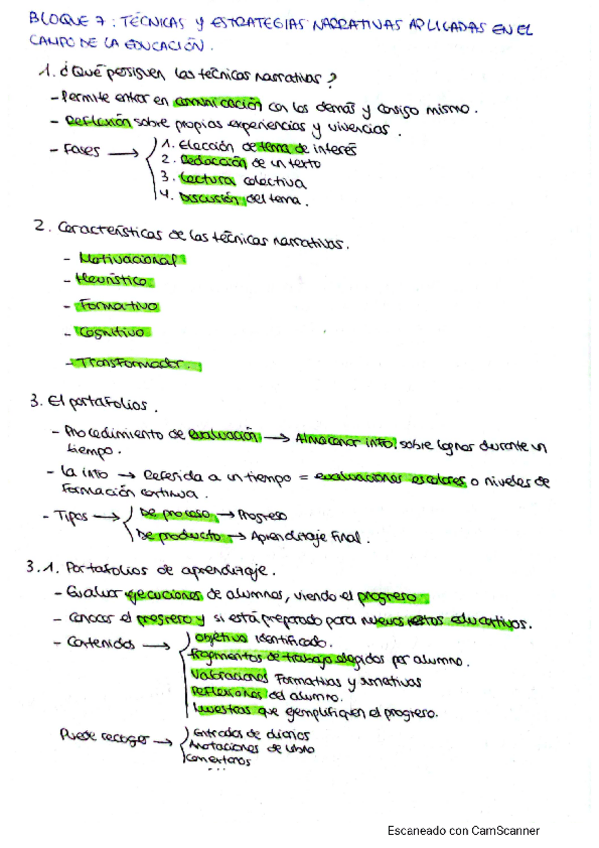 BLOQUE 7: TÉCNICAS Y ESTRATEGIAS NARRATIVAS APLICADAS EN EL
CAMPO DE LA EDUCACIÓN.
1. ¿Qué persiguen las técnicas narrativas?
- Permite entrar en comunicación con los demás y consigo mismo.
- Reflexión sobre propias experiencias y vivencias.
- Fases → 1. Elección de tema de interés
2. Redacción de un texto
3. Lectura colectiva
4. Discusión del tema.
2. Características de las técnicas narrativas.
- Motivacional
- Heurístico
- Formativo
- Cognitivo
- Transformador.
3. El portafolios.
- Procedimiento de evaluación → Almacenar info. sobre logros durante un
tiempo.
- La info → Referida a un tiempo = evaluaciones escolares o niveles de
formación continua.
- Tipos → De proceso → Progreso
De producto → Aprendizaje final.
3.1. Portafolios de aprendizaje.
- Evaluar ejecuciones de alumnos, viendo el progreso.
- Conocer el progreso y si está preparado para nuevos retos educativos.
- Contenidos → Objetivo identificado.
Fragmentos de trabajo elegidos por alumno.
Valoraciones formativas y sumativas
Reflexiones del alumno.
Muestras que ejemplifiquen el progreso.
Puede recoger → Entradas de diarios
Anotaciones de libro
Comentarios
...
Escaneado con CamScanner